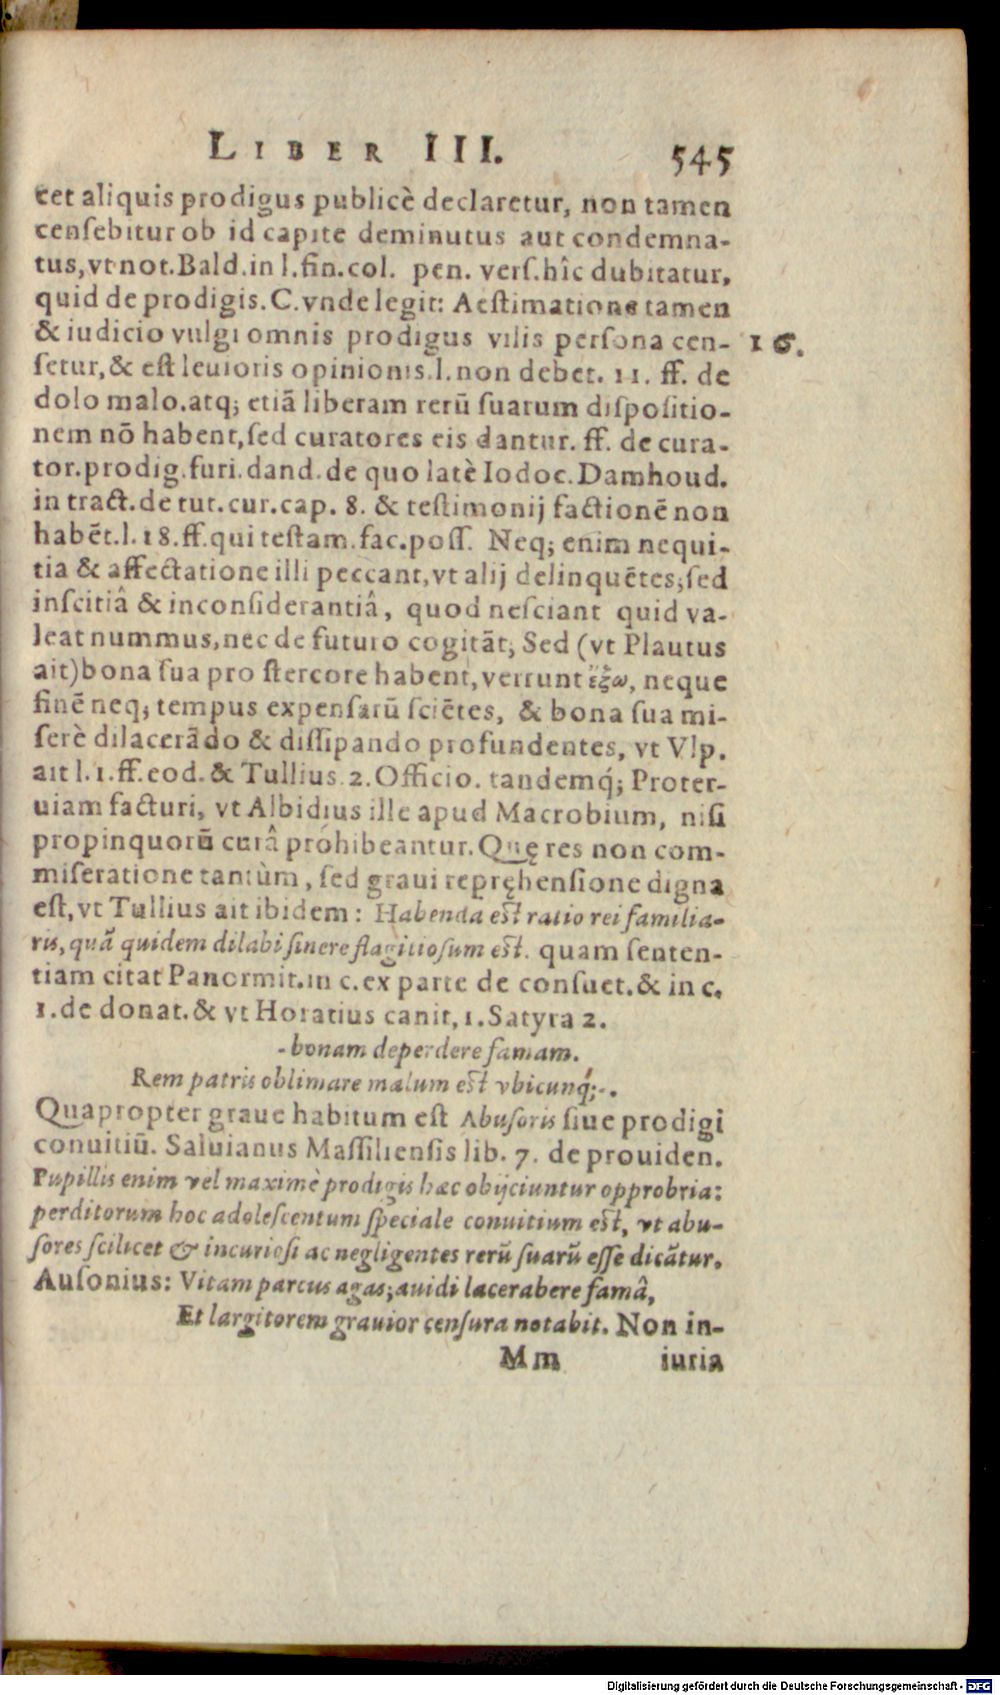 LIBER III. 545
cet aliquis prodigus publicè declaretur, non tamen
censebitur ob id capite deminutus aut condemna-
tus, vt not. Bald. in l. fin. col. pen. vers. hîc dubitatur,
quid de prodigis. C. vnde legit: Aestimatione tamen
& iudicio vulgi omnis prodigus vilis persona cen- 16.
setur, & est leuioris opinionis. l. non debet. 11. ff. de
dolo malo. atq; etiã liberam rerũ suarum dispositio-
nem nõ habent, sed curatores eis dantur. ff. de cura-
tor. prodig. furi. dand. de quo latè Iodoc. Damhoud.
in tract. de tut. cur. cap. 8. & testimonij factionẽ non
habẽt. l. 18. ff. qui testam. fac. poss. Neq; enim nequi-
tia & affectatione illi peccant, vt alij delinquẽtes; sed
inscitiâ & inconsiderantiâ, quod nesciant quid va-
leat nummus, nec de futuro cogitãt; Sed (vt Plautus
ait) bona sua pro stercore habent, verrunt ἔξω, neque
finẽ neq; tempus expensarũ sciẽtes, & bona sua mi-
serè dilacerãdo & dissipando profundentes, vt Vlp.
ait l. 1. ff. eod. & Tullius. 2. Officio. tandemq́; Proter-
uiam facturi, vt Albidius ille apud Macrobium, nisi
propinquorũ curâ prohibeantur. Quę res non com-
miseratione tantùm, sed graui repręhensione digna
est, vt Tullius ait ibidem: Habenda est ratio rei familia-
ris, quã quidem dilabi sinere flagitiosum est. quam senten-
tiam citat Panormit. in c. ex parte de consuet. & in c.
1. de donat. & vt Horatius canit, 1. Satyra 2.
- bonam deperdere famam.
Rem patris oblimare malum est vbicunq́;-.
Quapropter graue habitum est Abusoris siue prodigi
conuitiũ. Saluianus Massiliensis lib. 7. de prouiden.
Pupillis enim vel maximè prodigis hæc obijciuntur opprobria:
perditorum hoc adolescentum speciale conuitium est, vt abu-
sores scilicet & incuriosi ac negligentes rerũ suarũ esse dicãtur.
Ausonius: Vitam parcus agas; auidi lacerabere famâ,
Et largitorem grauior censura notabit. Non in-
Mm iuria
Digitalisierung gefördert durch die Deutsche Forschungsgemeinschaft - DFG